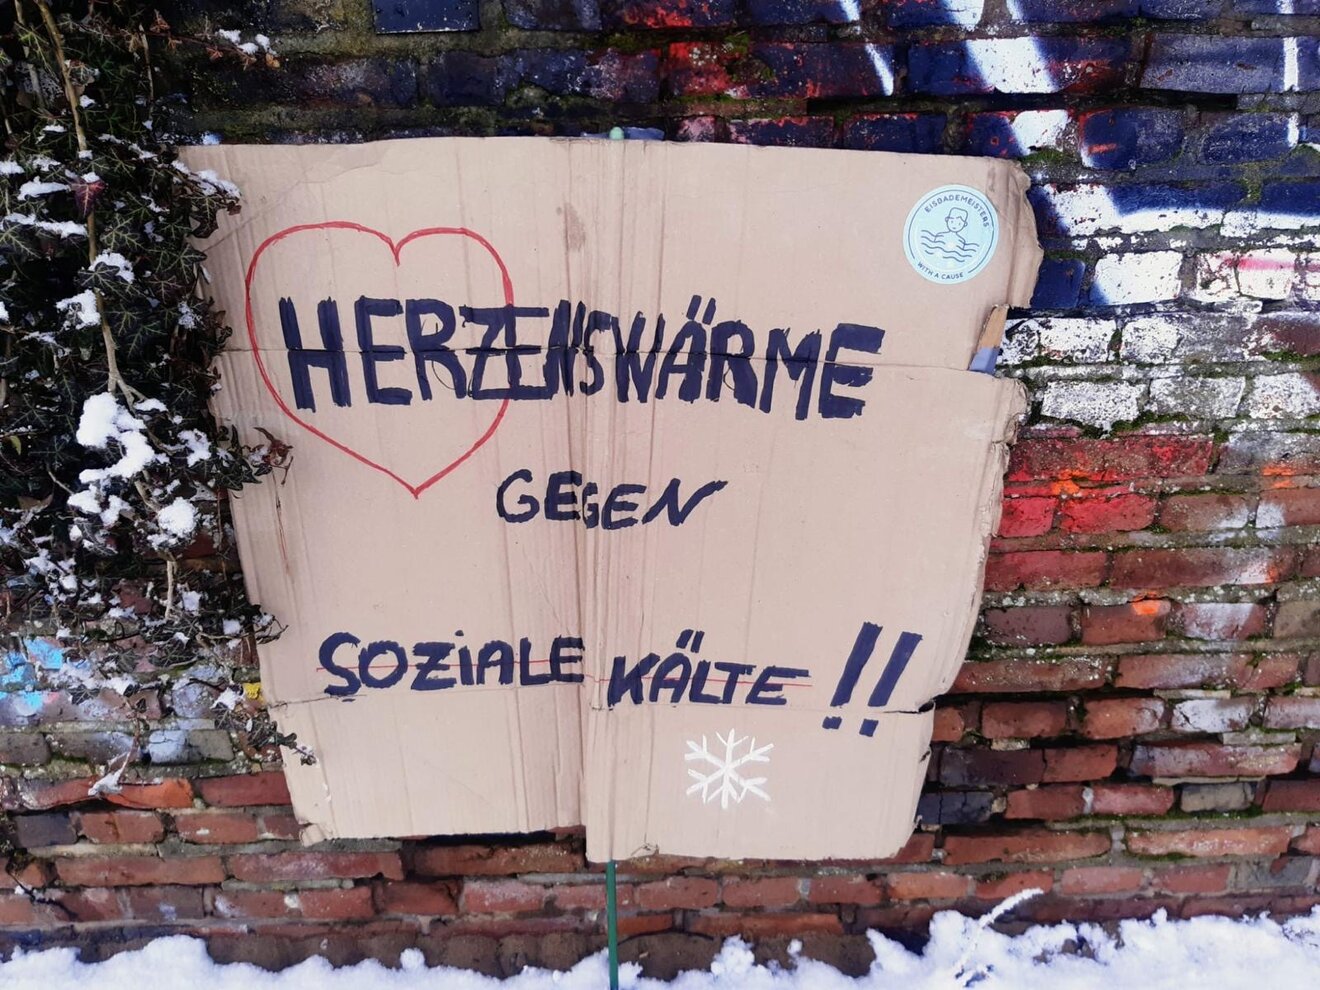 EISBADEMEISTERS
WITH A CAUSE
HERZENSWÄRME
GEGEN
SOZIALE KÄLTE !!